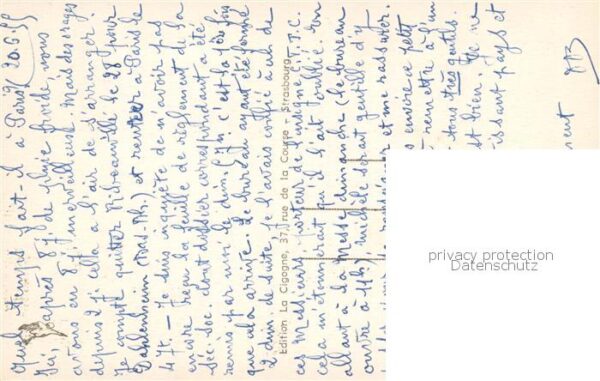 Quel temps fait-il à Paris? (20.6.55
Ici, après 8 j. de pluie froide, nous
avons eu 8 j. merveilleux mais des orages
depuis 2 j. cela a l'air de s'arranger.
Je compte quitter Ribeauvillé le 28 pour
Dahlenheim (Bas-Rh.) et rentrer à Paris le
4 7t. - Je suis inquiète de n'avoir pas
encore reçu la feuille de règlement de la
Séc. soc. dont dossier correspondant a été
remis par moi le dim. 5 juin c'est la 1ère fois
que cela arrive. Le bureau ayant été fermé
2 dim. de suite, je l'avais confié à un de
Edition La Cigogne, 37, rue de la Course - Strasbourg
ces Messieurs porteur de l'insigne C.F.T.C.
cela m'étonnerait qu'il l'ait oublié. Son
allant à la messe dimanche (le bureau
ouvre à 11h) Michèle serait gentille d'y
et me rassurer.
envoie ce petit
remettre à l'un
vous très gentils.
est bien. Je ne
pays et
privacy protection
Datenschutz